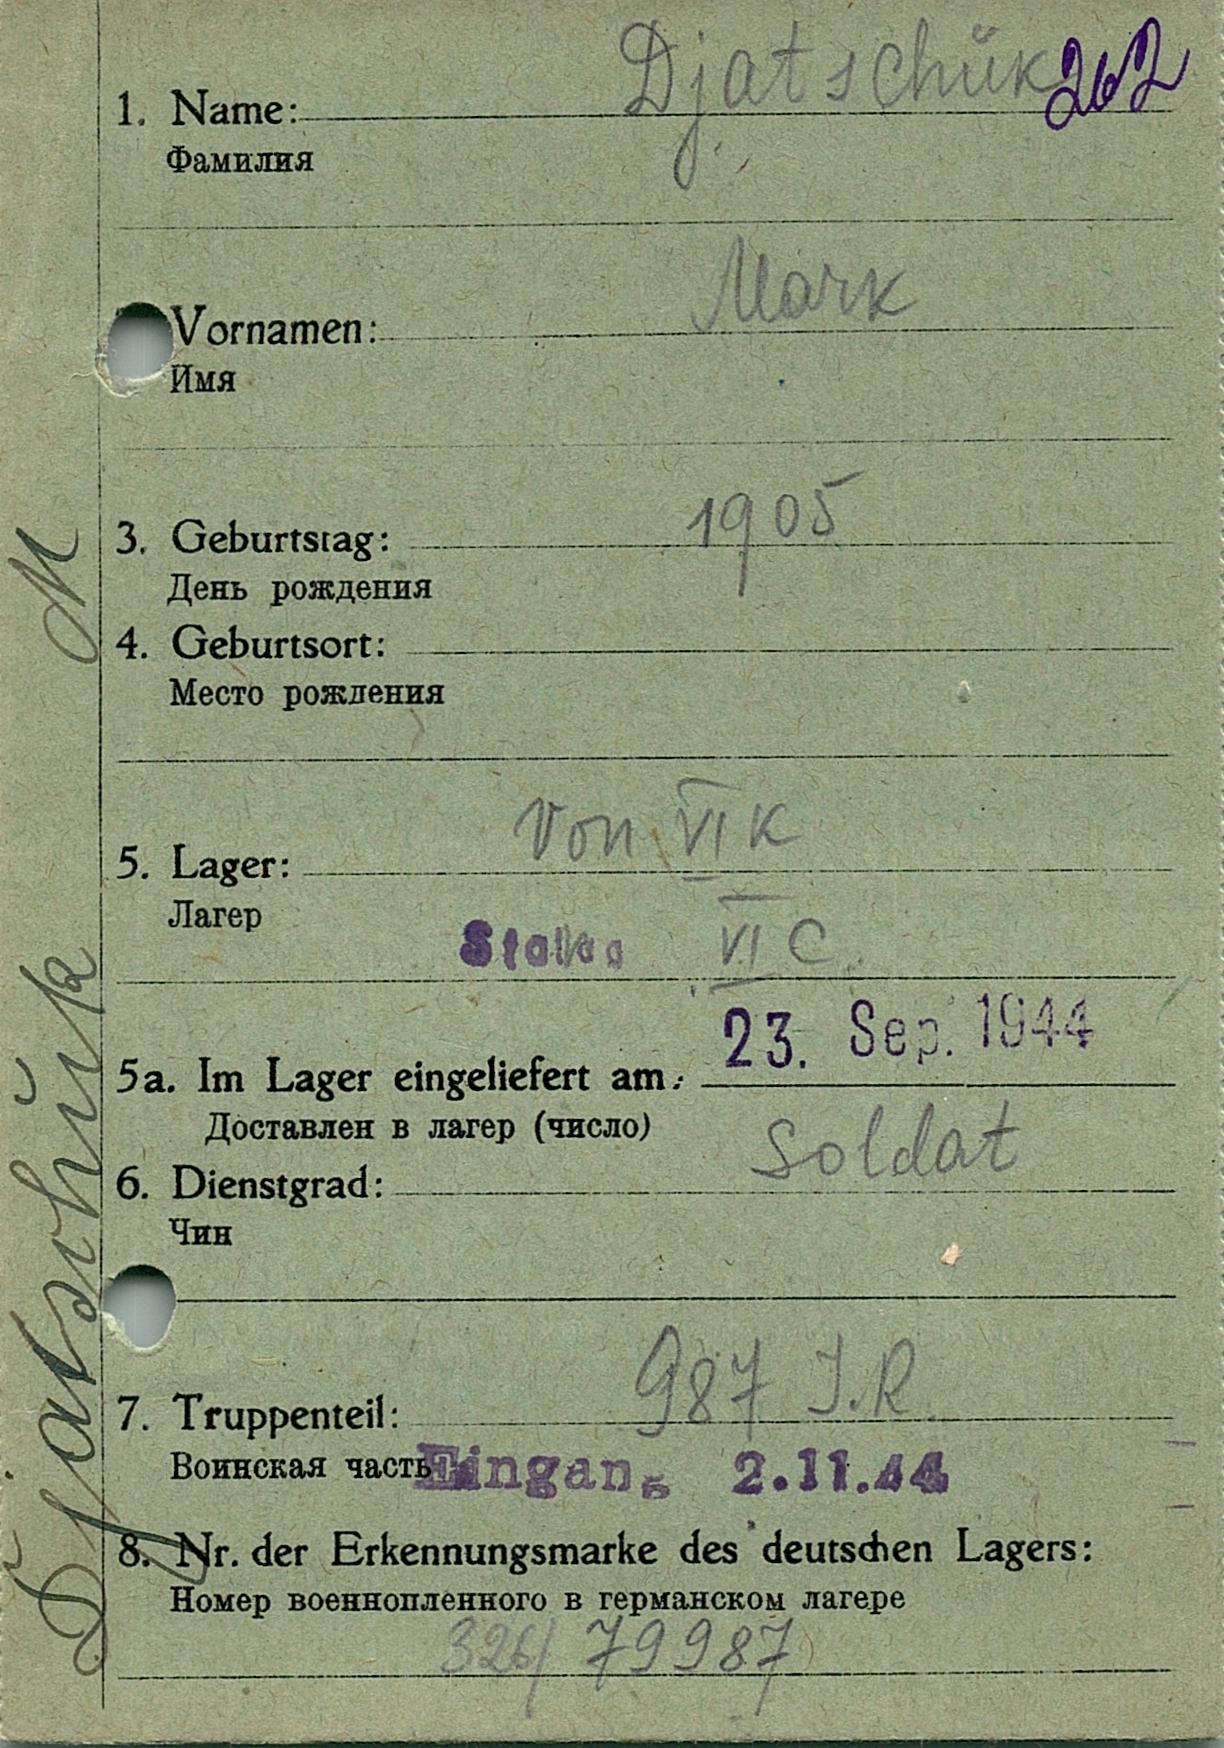 Djatschŭk 262
1. Name:
Фамилия
Mark
Vornamen:
Имя
1905
3. Geburtstag:
День рождения
4. Geburtsort:
Место рождения
von VI K
5. Lager:
Лагер
Stalag VI C
23. Sep. 1944
5a. Im Lager eingeliefert am:
Доставлен в лагер (число)
Soldat
6. Dienstgrad:
Чин
987 J.R.
7. Truppenteil:
Воинская часть
Eingang 2.11.44
8. Nr. der Erkennungsmarke des deutschen Lagers:
Номер военнопленного в германском лагере
326/ 79987
Djatschŭk M